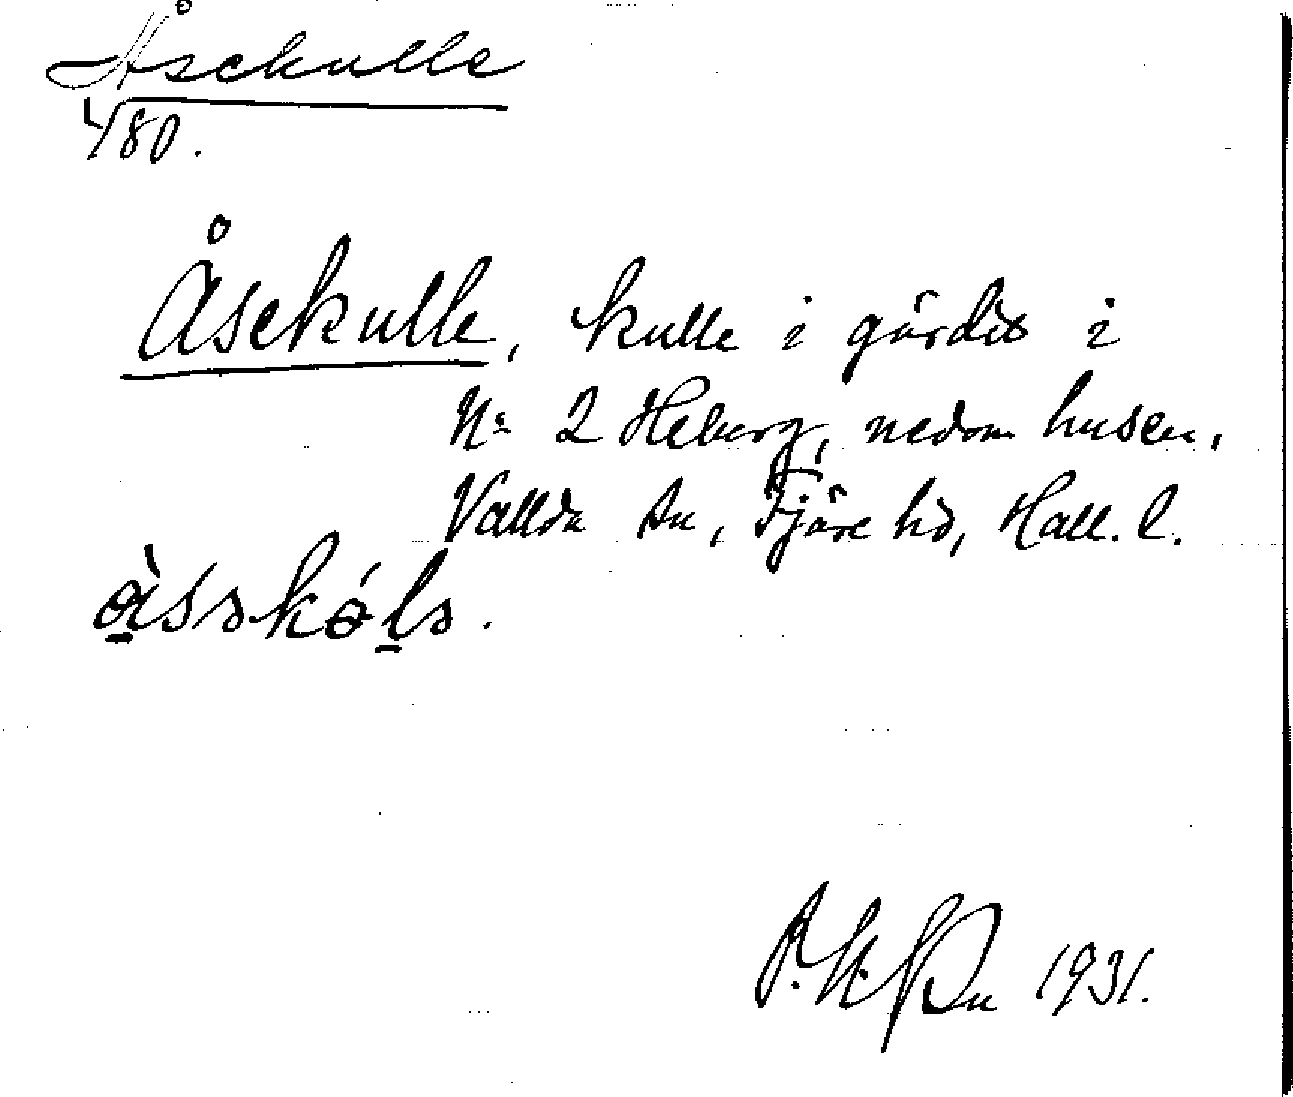 Åsekulle
4/80.
Åsekulle, kulle i gärdet i
No 2 Heberg, nedom husen,
Vallda sn, Fjäre hd, Hall. l.
1931.